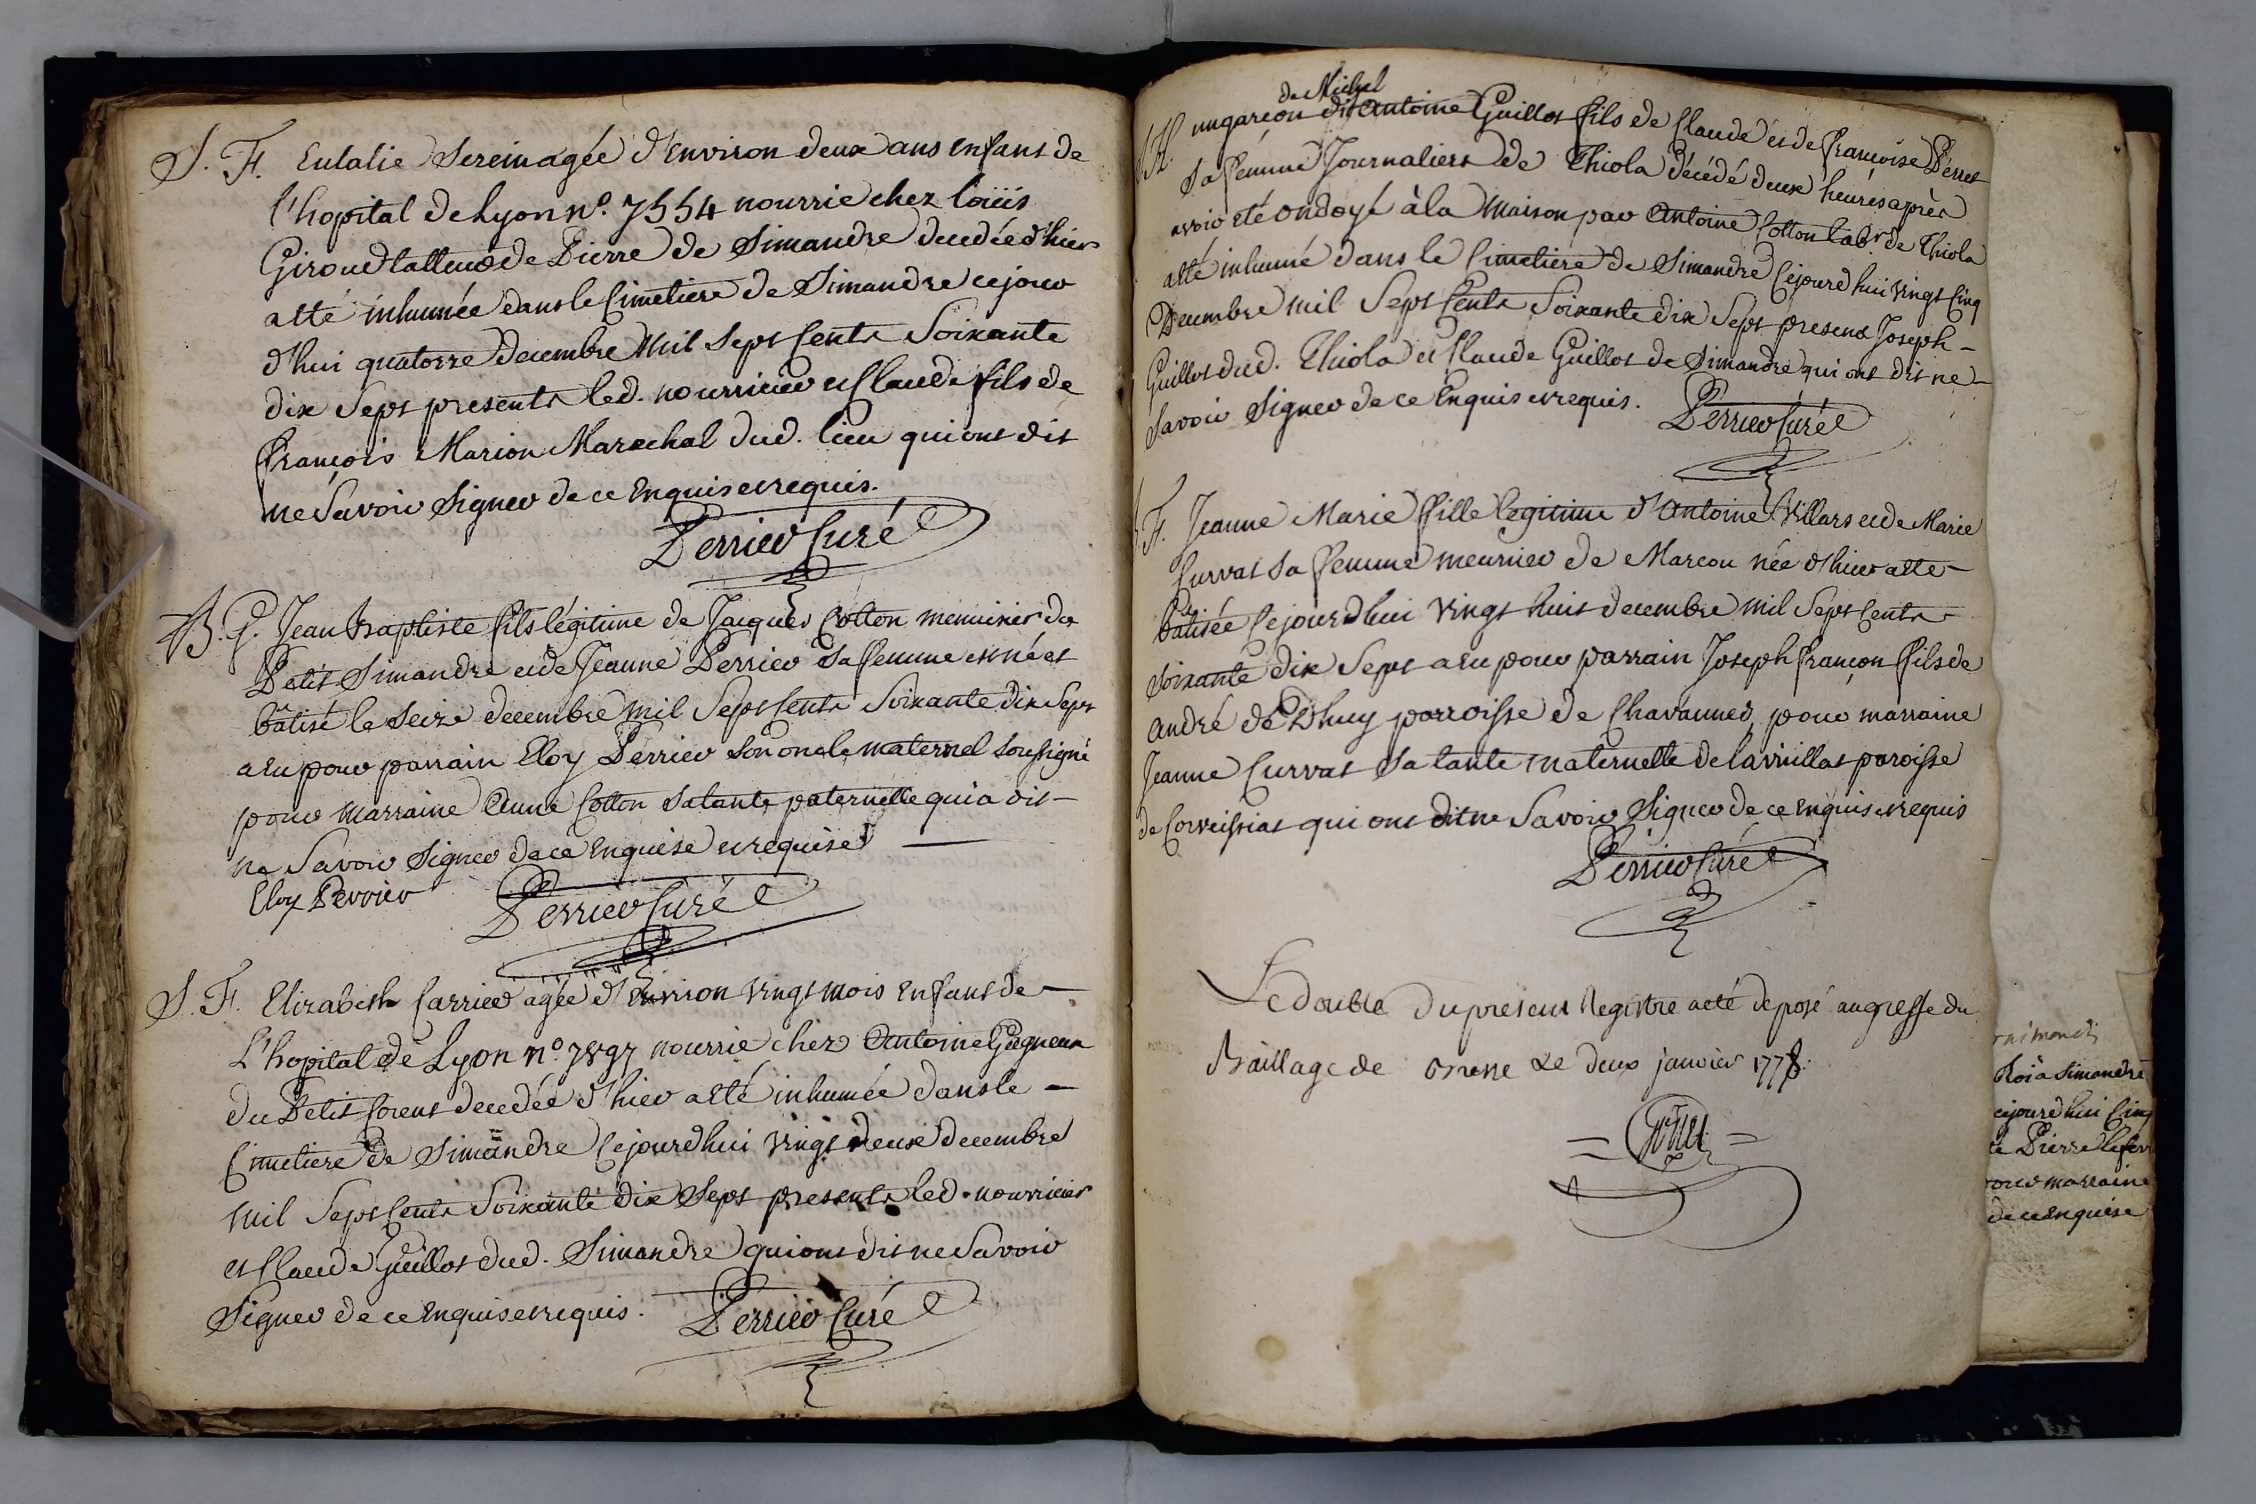 S. F. Eulalie Serein agée d'Environ deux ans enfant de
l'hopital de Lyon n°. 7554 nourrie chez loüis
Giroud tatteur de Pierre de Simandre decedée d'hier
a Eté inhumée dans le Cimetiere de Simandre ce jour
d'hui quatorze decembre Mil Sept Cents Soixante
dix Sept presents led. nourricier et Claude fils de
françois Marion Marechal dud. lieu qui ont dit
ne Savoir Signer de ce Enquis et requis.
Perrier Curé
B. G. Jean Baptiste fils légitime de Jacques Cotton menuisier du
Petit Simandre et de Jeanne Perrier Sa femme est né et
bâtisé le Seize decembre mil Sept Cents Soixante dix Sept
a Eu pour parrain Eloy Perrier Son oncle maternel Soussigné
pour marraine Anne Cotton Sa tante paternelle qui a dit
ne Savoir Signer de ce Enquise et requise
Eloy Perrier Perrier Curé
S. F. Elizabeth Carrier agée d'Environ vingt mois Enfant de
L'hopital de Lyon n°. 7897 nourrie chez Antoine Gagneur
du Petit Corent decedée d'hier a Eté inhumée dans le
Cimetiere de Simandre Cejourd'hui vingt deux decembre
Mil Sept Cents Soixante dix Sept presents led. nourricier
et Claude Guillot dud. Simandre qui ont dit ne Savoir
Signer de ce Enquis et requis. Perrier Curé
de Michel
un garcon dit Antoine Guillot fils de Claude et de françoise Perret
Sa femme Journaliers de Thiola décédé deux heures après
avoir eté ondoyé à la Maison par Antoine Cotton Labr. de Thiola
a Eté inhumé dans le Cimetiere de Simandre Cejourd'hui Vingt Cinq
Decembre Mil Sept Cents Soixante dix Sept presens Joseph
Guillot dud. Thiola et Claude Guillot de Simandre qui ont dit ne
Savoir Signer de ce Enquis et requis. Perrier Curé
F. Jeanne Marie fille legitime d'Antoine Villars et de Marie
Curvat Sa femme meunier de Marcou née d'hier a Eté
Batisée Cejourd'hui Vingt huit decembre Mil Sept Cents
Soixante dix Sept a Eu pour parrain Joseph françon fils de
André de Dhuy parroisse de Chavannes, pour marraine
Jeanne Curvat Sa tante maternelle de Lavrillat paroisse
de Corveissiat qui ont dit ne Savoir Signer de ce Enquis et requis
Perrier Curé
Le double du present Registre a eté deposé au greffe du
Baillage de Bresse Le deux janvier 1778.
Roi a Simandre
cejourd'hui Cinq
Pierre
pour marraine
de ce Enquise